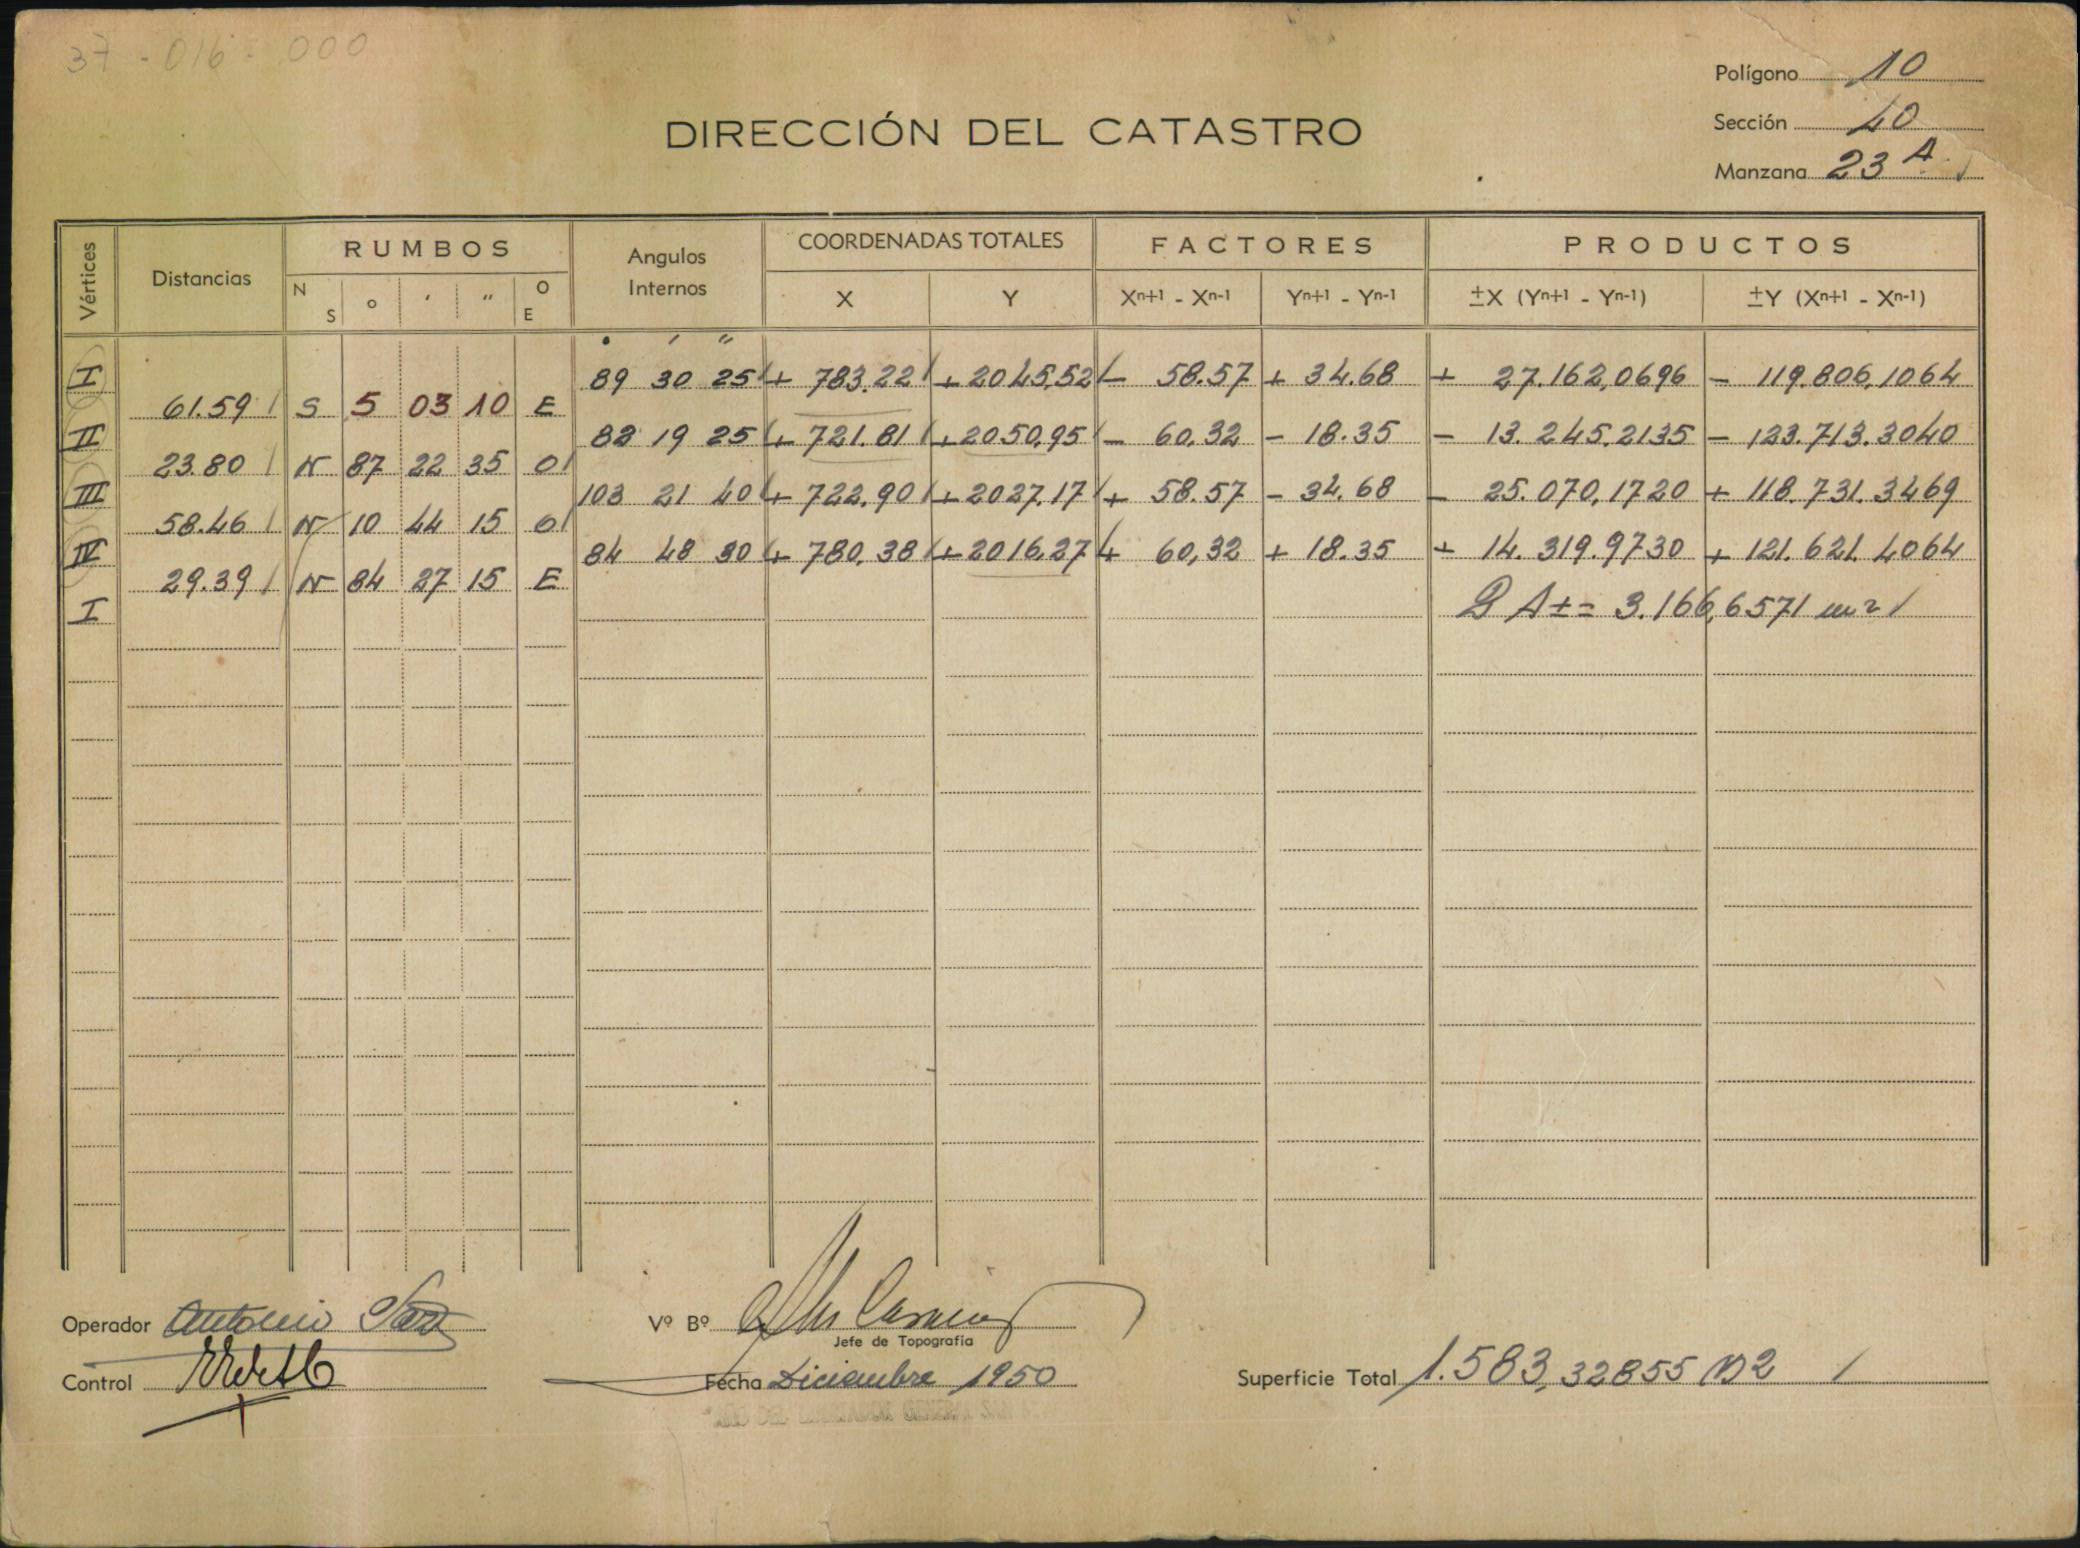 37-016-000
Polígono 10
Sección 40
Manzana 23 A
DIRECCIÓN DEL CATASTRO
Vértices Distancias RUMBOS Angulos Internos COORDENADAS TOTALES FACTORES PRODUCTOS
N S o ′ ″ O E X Y Xn+1 - Xn-1 Yn+1 - Yn-1 ±X (Yn+1 - Yn-1) ±Y (Xn+1 - Xn-1)
° ′ ″
I 89 30 25 + 783.22 + 2045,52 - 58.57 + 34.68 + 27.162,0696 - 119.806,1064
61.59 S 5 03 10 E
II 82 19 25 + 721.81 + 2050,95 - 60,32 - 18.35 - 13.245,2135 - 123.713.3040
23.80 N 87 22 35 O
III 103 21 40 + 722,90 + 2027,17 + 58.57 - 34.68 - 25.070,1720 + 118.731.3469
58.46 N 10 44 15 O
IV 84 48 30 + 780,38 + 2016,27 + 60,32 + 18.35 + 14.319.9730 + 121.621.4064
29.39 N 84 27 15 E
I 2 A ± = 3.166,6571 m2
Operador Antonio
Vº Bº
Jefe de Topografía
Control
Fecha Diciembre 1950
Superficie Total 1.583,32855 m2